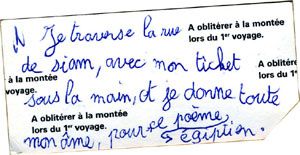 A oblitérer à la montée
lors du 1er voyage.
Je traverse la rue
de siam, avec mon ticket
à la montée
voyage.
A oblitére
lors du 1er
sous la main, et je donne toute
A oblitérer à la montée
lors du 1er voyage.
mon âme, pour ce poème
égiptien.